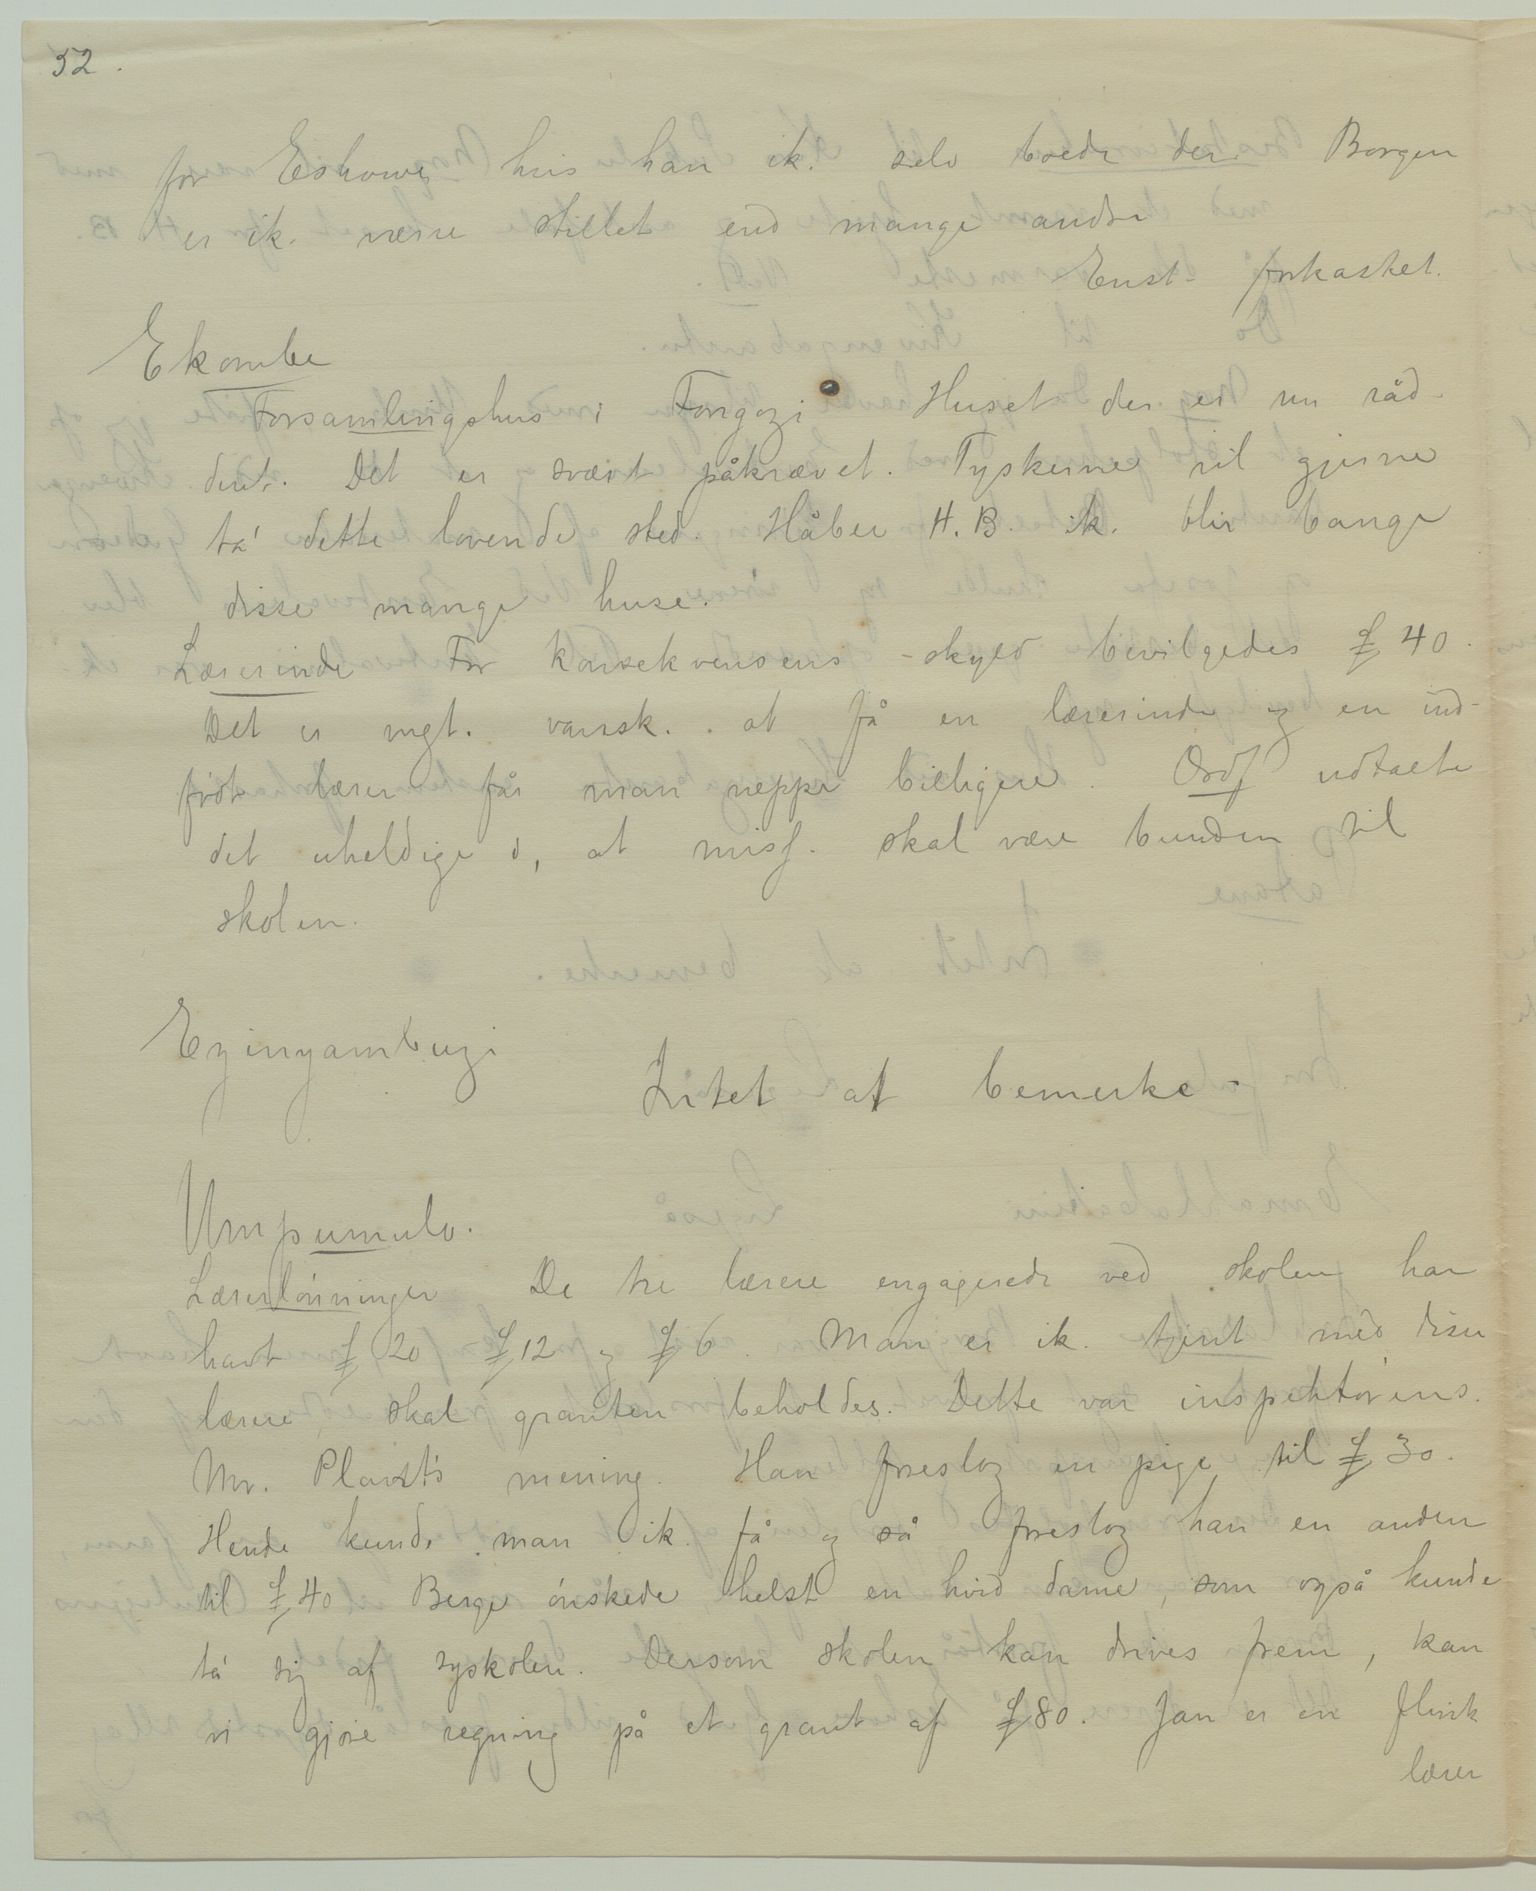 52.
for Eshowe, hvis han ik. selv boede der. Borgen
er ik. værre stillet end mange andre
Enst. forkastet.
Ekombe
Forsamlingshus i Fongozi Huset der er nu råd-
dent. Det er svært påkrævet. Tyskerne vil gjerne
ta' dette lovende sted. Håber H.B. ik. blir bange
disse mange huse.
Lærerinde For konsekvensens skyld bevilgedes £ 40.
Det er mgt. vansk. at få en lærerinde og en ind-
født lærer får man neppe billigere. Ordf udtalte
det uheldige i, at miss. skal være bunden til
skolen.
Ezinyambuzi
Intet at bemerke
Umpumulo.
Lærerlønninger De tre lærere engagerede ved skolen har
havt £ 20 - £ 12 og £ 6. Man er ik. tjent med disse
lærere, skal granten beholdes. Dette var inspektørens
Mr. Plant's mening. Han foreslog en pige til £ 30.
Hende kunde man ik. få og så foreslog han en anden
til £ 40 Berge ønskede, helst en hvid dame, som også kunde
ta' sig af syskolen. Dersom skolen kan drives frem, kan
vi gjøre regning på et grant af £ 80. Jan er en flink
lærer